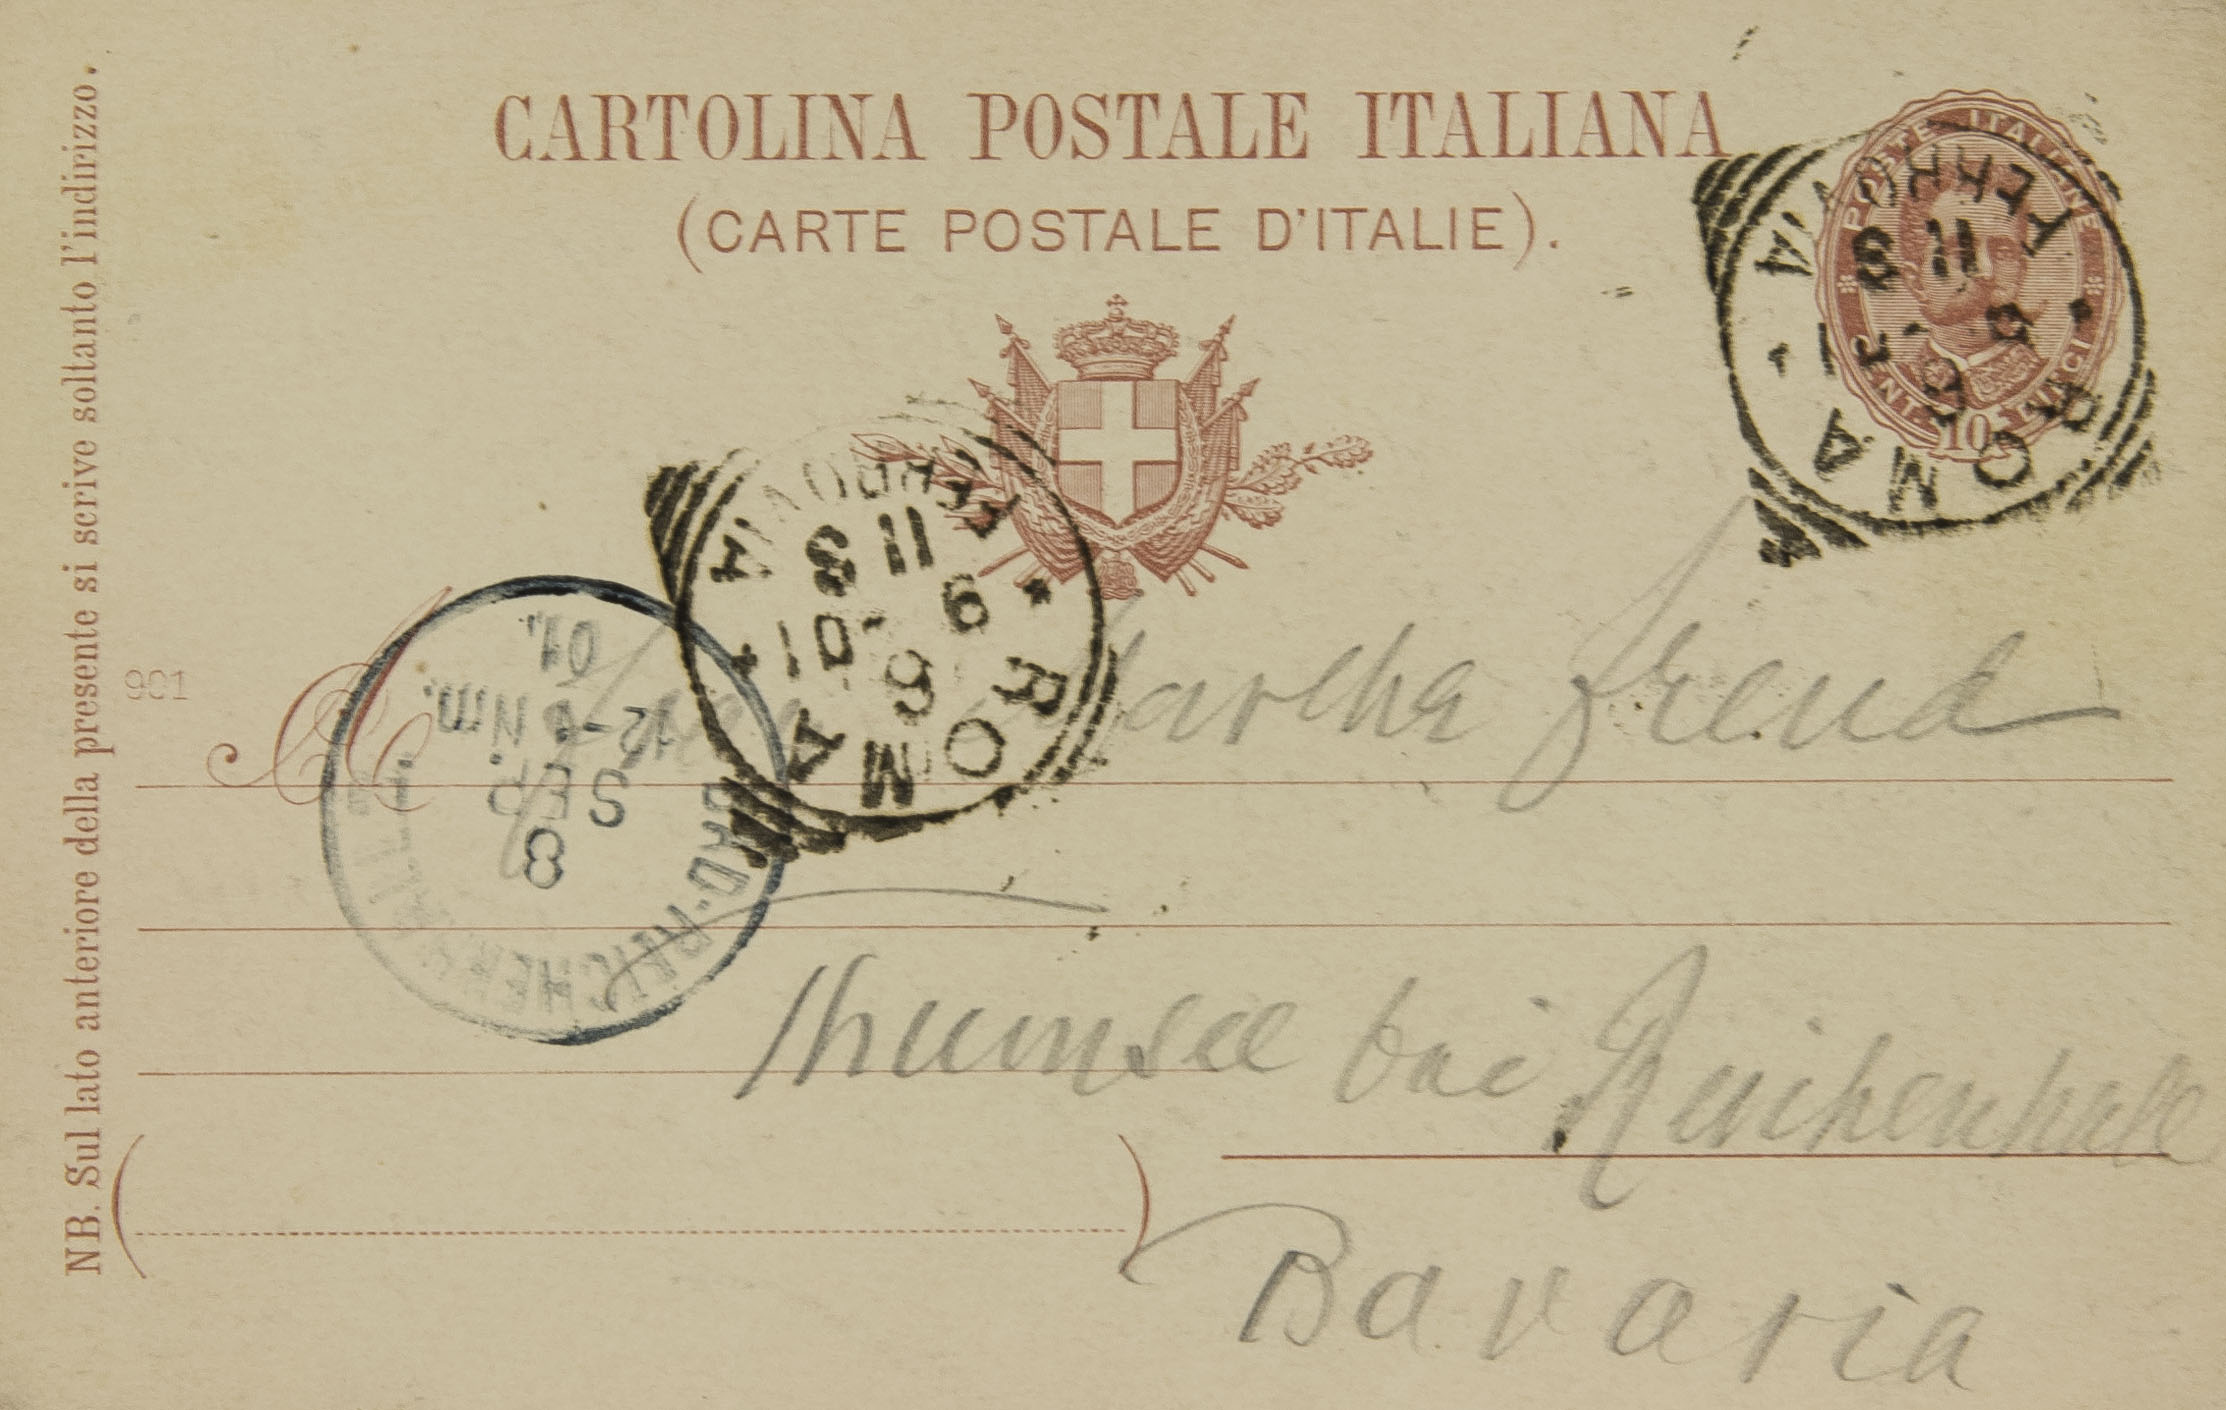 CARTOLINA POSTALE ITALIANA
(CARTE POSTALE D'ITALIE).
POSTE ITALIANE
CENT. 10 CINCI
ROMA
FERROVIA
6 9
01
3 11
ROMA
FERROVIA
6 9
01
3 11
NB. Sul lato anteriore della presente si scrive soltanto l'indirizzo.
901
A
Martha Freud
BAD-REICHENHALL
8
SEP.
12-1 Nm.
01.
Thumsee bei Reichenhall
Bavaria